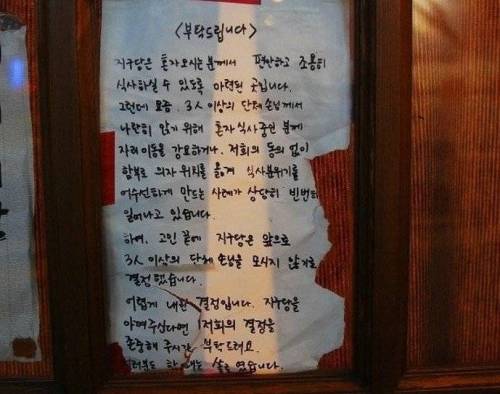 <부탁드립니다>
지구당은 혼자오시는 분께서 편안하고 조용히
식사하실 수 있도록 마련된 곳입니다.
그런데 요즘, 3人 이상의 단체 손님께서
나란히 앉기 위해 혼자 식사중인 분께
자리이동을 강요하거나, 저희의 동의 없이
함부로 의자 위치를 옮겨 식사분위기를
어수선하게 만드는 사례가 상당히 빈번히
일어나고 있습니다.
하여, 고민 끝에 지구당은 앞으로
3人 이상의 단체 손님을 모시지 않기로
결정했습니다.
어렵게 내린 결정입니다. 지구당을
아껴주신다면 저희의 결정을
존중해 주시길 부탁드려요.